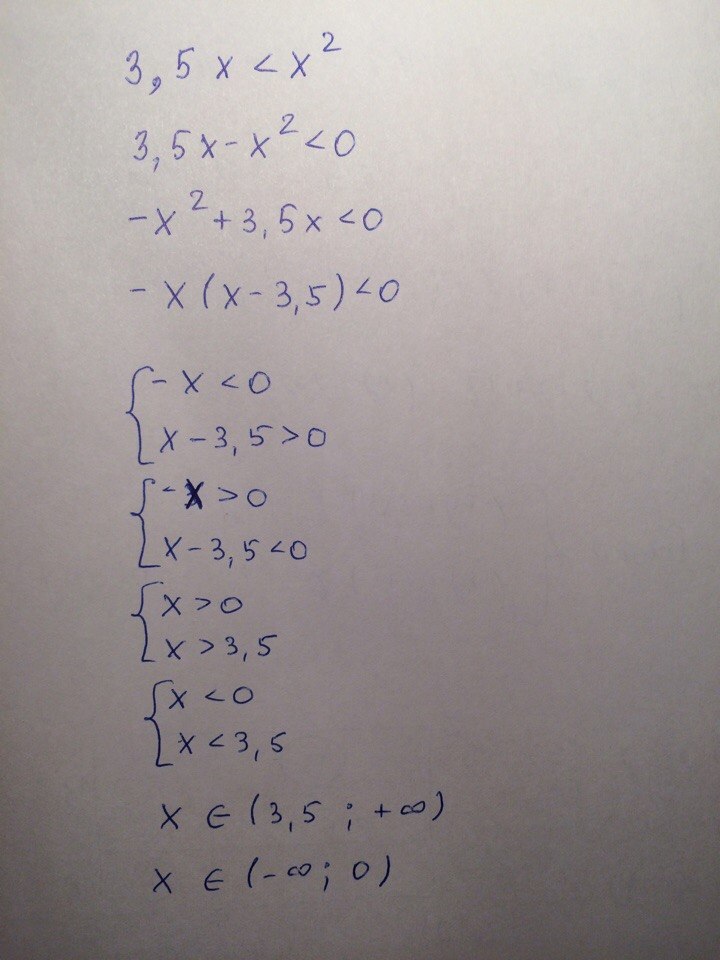 3,5x < x²
3,5x - x² < 0
-x² + 3,5x < 0
-x(x - 3,5) < 0
{ -x < 0
x - 3,5 > 0
{ -x > 0
x - 3,5 < 0
{ x > 0
x > 3,5
{ x < 0
x < 3,5
x ∈ (3,5 ; +∞)
x ∈ (-∞; 0)